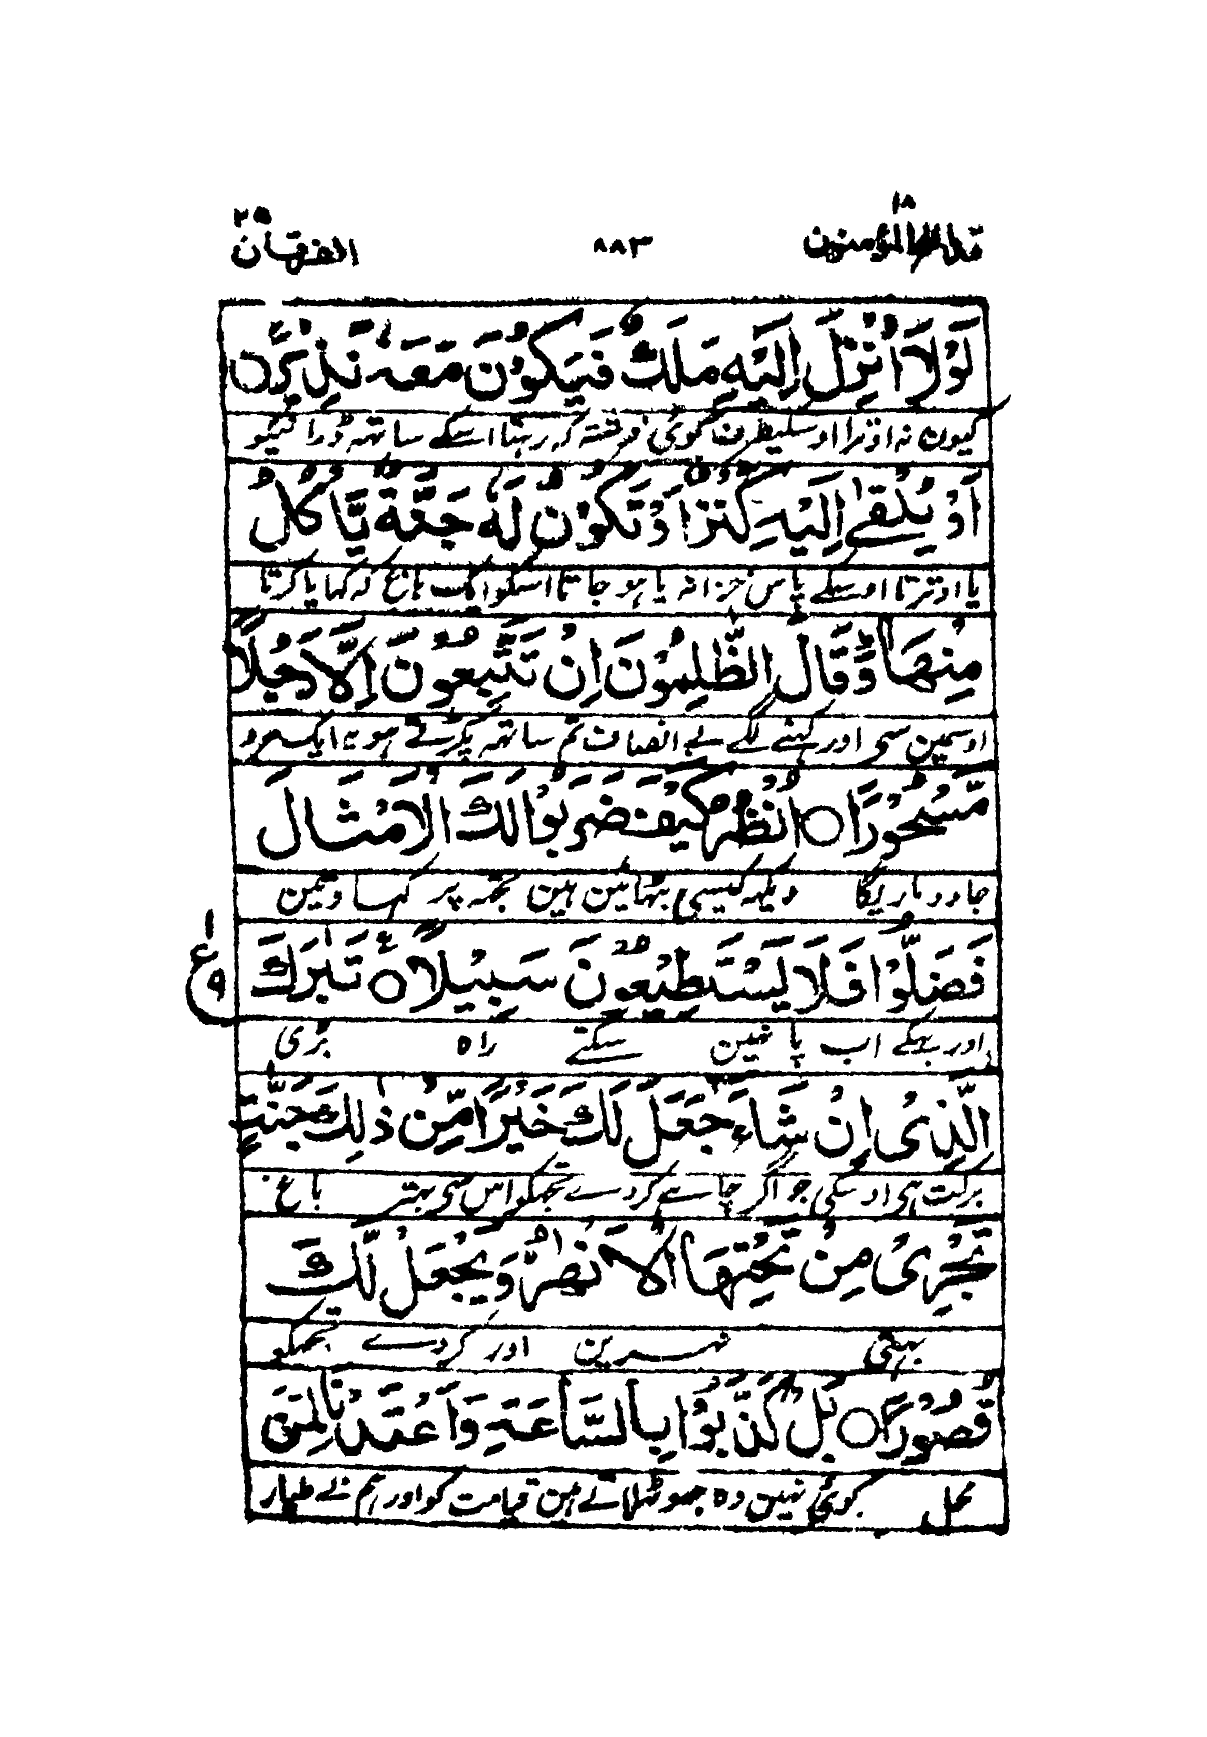 قد افلح المؤمنون ١٨ ٨٨٣ الفرقان ٢٥
لَوْلَآ اُنْزِلَ اِلَيْهِ مَلَكٌ فَيَكُوْنَ مَعَهٗ نَذِيْرًا ۙ
کیون نہ اوترا اوسکیطرف کوئی فرشتہ کہ رہتا اسکے ساتھہ ڈرانیکو
اَوْ يُلْقٰٓى اِلَيْهِ كَنْزٌ اَوْ تَكُوْنُ لَهٗ جَنَّةٌ يَّاْكُلُ
یا اوترتا اوسکے پاس خزانہ یا ہو جاتا اسکو ایک باغ کہ کہایا کرتا
مِنْهَا ؕ وَقَالَ الظّٰلِمُوْنَ اِنْ تَتَّبِعُوْنَ اِلَّا رَجُلًا
اوسمین سی اور کہنے لگے بے انصاف تم ساتھہ پکڑتے ہو یہ ایک مرد
مَّسْحُوْرًا ○ اُنْظُرْ كَيْفَ ضَرَبُوْا لَكَ الْاَمْثَالَ
جادو مار یگا دیکہہ کیسی بٹھائین ہین تجھہ پر کہاوتین
فَضَلُّوْا فَلَا يَسْتَطِيْعُوْنَ سَبِيْلًا ○ ع تَبٰرَكَ
اور بہکے اب پا نہین سکتے راہ بڑی
الَّذِيْٓ اِنْ شَآءَ جَعَلَ لَكَ خَيْرًا مِّنْ ذٰلِكَ جَنّٰتٍ
برکت ہی اوسکی جو اگر چاہے کردے تجھکو اس سی بہتر باغ
تَجْرِيْ مِنْ تَحْتِهَا الْاَنْهٰرُ وَيَجْعَلْ لَّكَ
بہتی نہرین اور کردے تجھکو
قُصُوْرًا ○ بَلْ كَذَّبُوْا بِالسَّاعَةِ وَاَعْتَدْنَا لِمَنْ
محل کوئی نہین وہ جھوٹھلاتے ہین قیامت کو اور ہم نے طیار